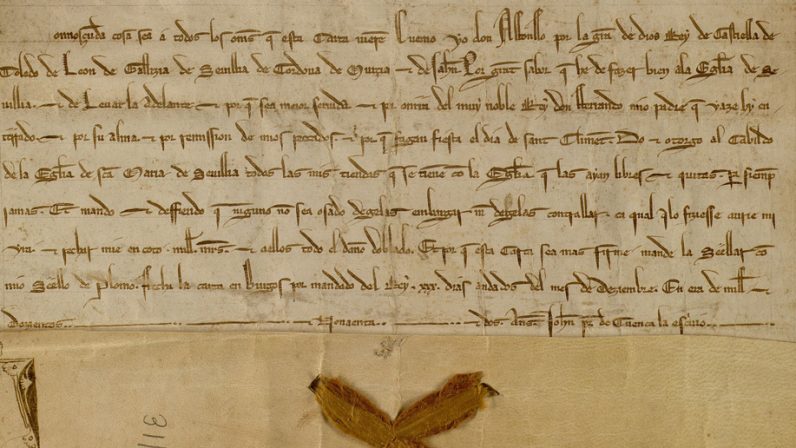 onnosçuda cosa sea a todos los om̄s q̄ esta Carta uieren Cuemo yo don Alfonsso por la gr̄a de dios Rey de Castiella de
Toledo de Leon de Gallizia de Seuillia de Cordoua de Murcia ⁊ de Jahen̄ Por grant sabor q̄ he de fazer bien ala Egl̄ia de Se
uillia ⁊ de Leuarla adelante ⁊ por q̄ sea meior seruida ⁊ por onrra del muy noble Rey don fferrando mio padre q̄ yaze hy en
terrado ⁊ por su alma ⁊ por remission de mios peccados ⁊ por q̄ fagan fiesta el dia de sant Climent. Do ⁊ otorgo al Cabildo
de la Egl̄ia de sc̄a Maria de Seuillia todos las mis tiendas q̄ se tienē con la Egl̄ia q̄ las ayan libres ⁊ quitas. por siemp̄
iamas. Et mando ⁊ deffiendo q̄ ninguno non sea osado degelas embargar nī degelas contrallar. ca qual q̄ lo fiziesse aurie mi
yra. ⁊ pechar mie en coto. mill. mr̄s. ⁊ aellos todo el danno doblado. Et por q̄ esta Carta sea mas firme mande la Seellar cō
mio Seello de Plomo. fecha la carta en Burgos por mandado del Rey. xxx. dias andados del mes de Deziembre. En era de mill ⁊
Dozientos Nonaenta ⁊ dos. Johan p̄z de Cuenca la escriuio
311